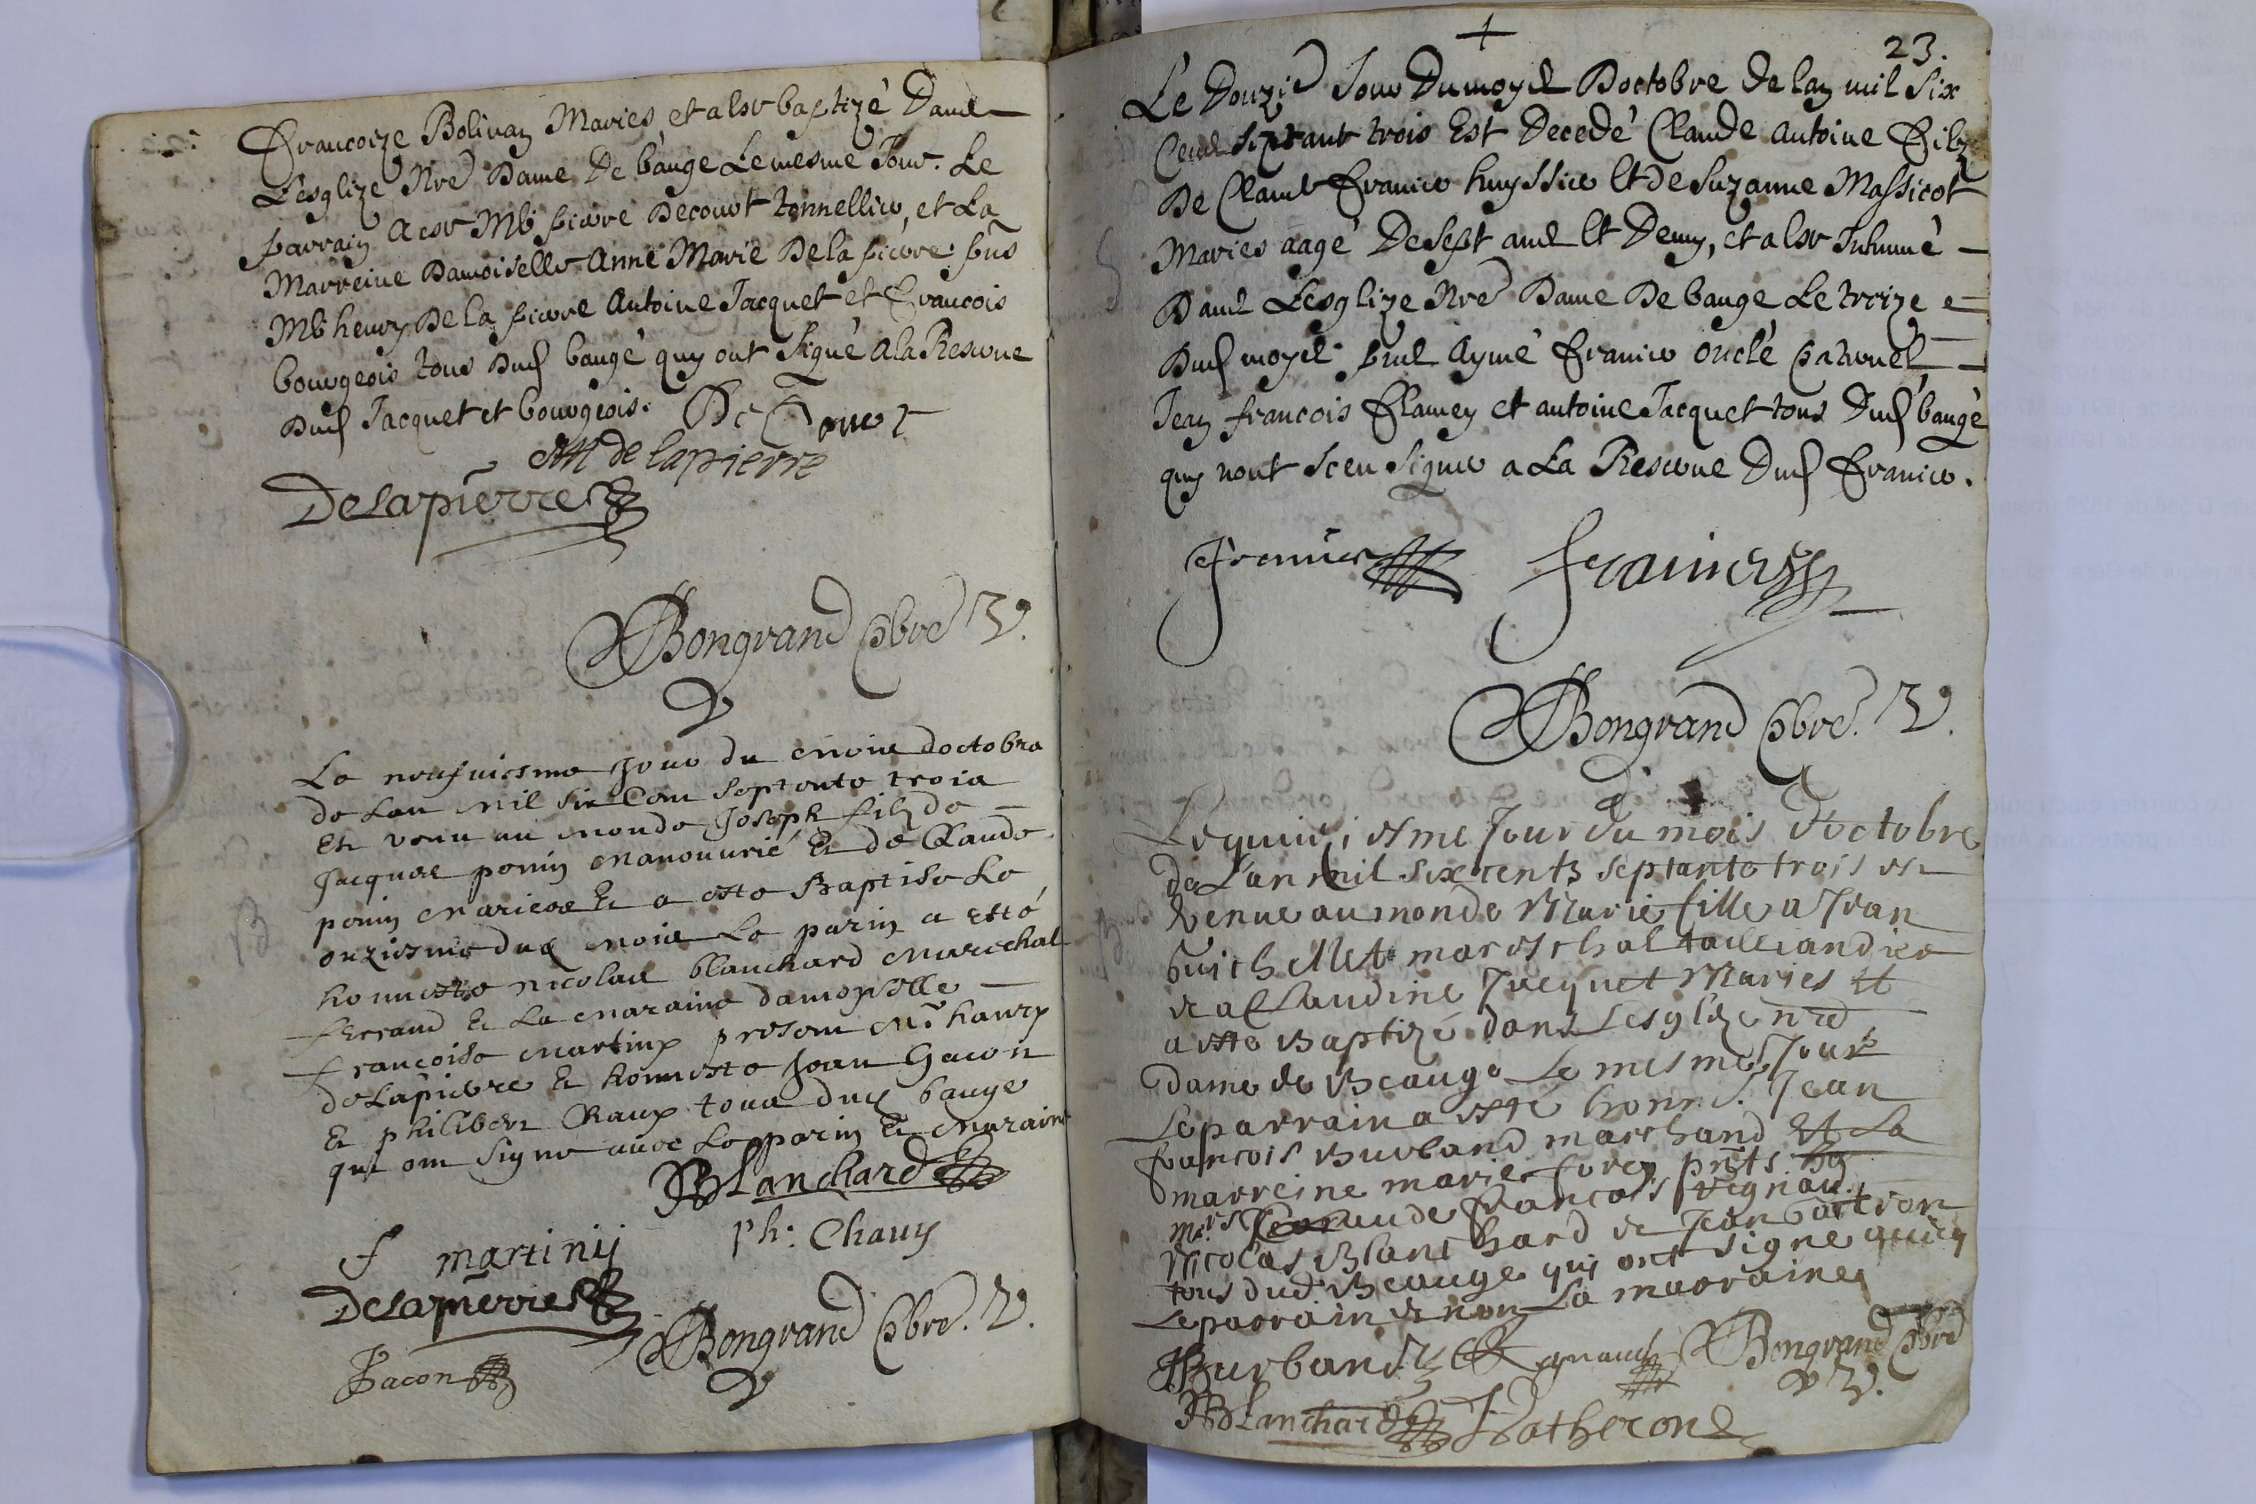 Francoize Bolivan Maries et a este baptizé dans
L'esglize Nre Dame De baugé Le mesme Jour. Le
parrain a este Me pierre Decourt tonnellier, et La
Marreine Damoiselle Anne Marie De la pierre. pnts
Me henry De la pierre Antoine Jacquet et Francois
bourgeois tous dud baugé quy ont signé a la Reserve
Dud Jacquet et bourgeois. De Court
AM de lapierre
Delapierre
Bongrand pbre V.
Le neufviesme Jour du mois doctobre
de Lan mil six Cent septante trois
Est venu au monde Joseph filz de
Jacques ponin manouvrié Et de Claude
ponin maries Et a esté Baptisé Le
onziesme dud mois Le parin a esté
honneste nicolas blanchard marechal
ferrand Et La maraine damoyselle
francoise martiny present Mr. hanry
de Lapierre Et honneste Jean Gacon
Et philibert Chaux tous dud bauge
qui ont signe avec Le parin Et maraine
Blanchard
f martinij
Ph: Chauy
Delapierre
Bongrand pbre. V.
Gacon
+
23.
Le Douzie Jour Du moys Doctobre De lan mil six
Cents septante trois Est Decedé Claude Antoine Filz
De Claude Franier huyssier Et de Suzanne Massicot
Maries aagé De sept ans Et Demy, et a este Inhumé
Dans L'esglize Nre Dame De bauge Le treize
Dud moys. pnts Aymé Franier oncle paternel
Jean francois Flamey et antoine Jacquet tous Dud baugé
quy nont sceu signer a La Reserve Dud Franier.
Franier
Franier
Bongrand pbre. V.
Le quinziesme Jour du mois d'octobre
de L'an mil six cents septante trois est
Venue au monde Marie fille a Jean
Guichellet mareschal taillandier
et a Claudine Jacquet Maries et
a esté Baptizé dans L'esglize nre
dame de Beaugé Le mesme Jour
Le parrain a esté honn. Jean
francois Burband marchand Et La
marreine marie forey pnts
Mrs Claude francois regnaud
Nicolas Blanchard et Jean
tous dud Beauge qui ont signe avecq
Le parrain et non La marraine
Burband Regnaud Bongrand pbre
V.
Blanchard Katheron